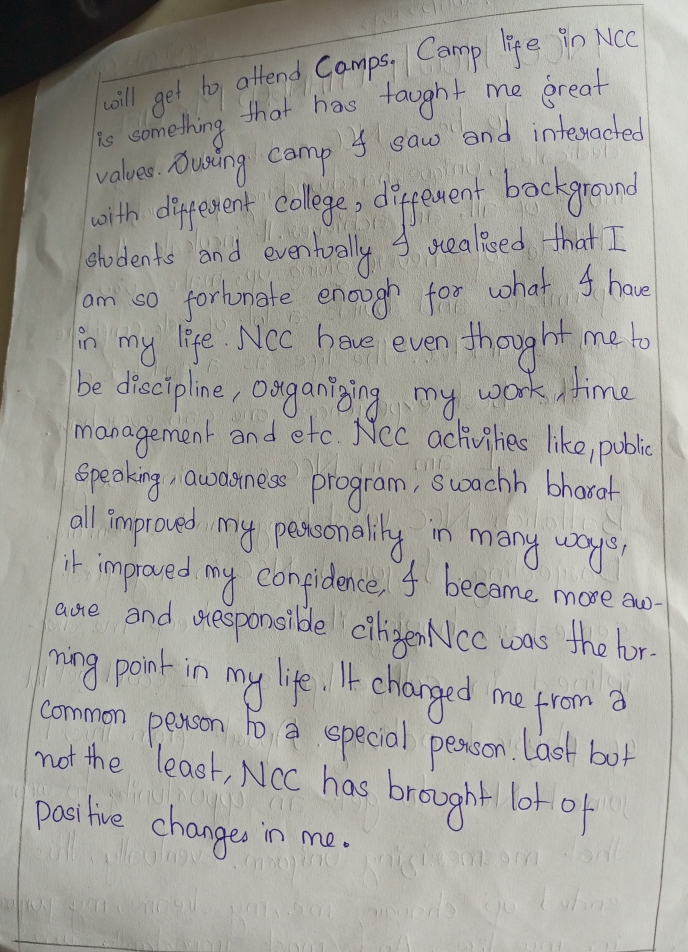 will get to attend Camps. Camp life in NCC
is something that has taught me great
values. During camp I saw and interacted
with different college, different background
students and eventually I realised that I
am so fortunate enough for what I have
in my life. NCC have even thought me to
be discipline, organizing my work, time
management and etc. NCC activities like, public
Speaking, awarness program, swachh bharat
all improved my personality in many ways,
it improved my confidence, I became more aw-
are and responsible citizen NCC was the tur-
ning point in my life. It changed me from a
common person to a special person. Last but
not the least, NCC has brought lot of
Positive changes in me.